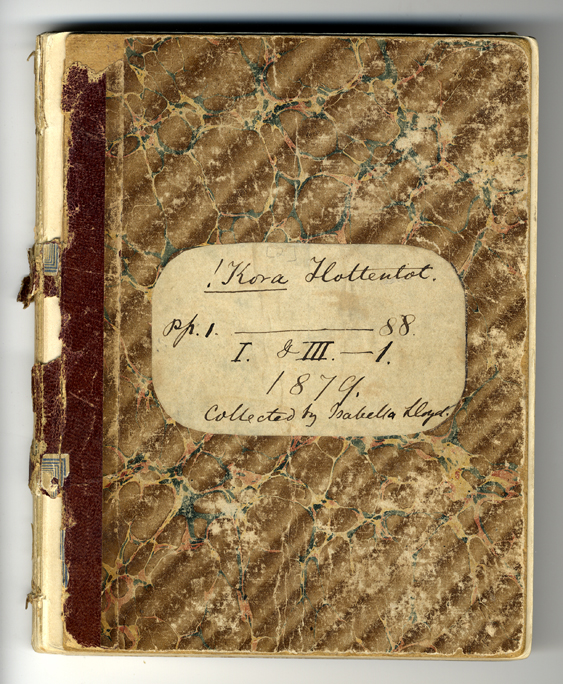 ! Kora Hottentot.
pp. 1. ——— 88.
I. & III. — 1.
1879.
Collected by Isabella Lloyd.